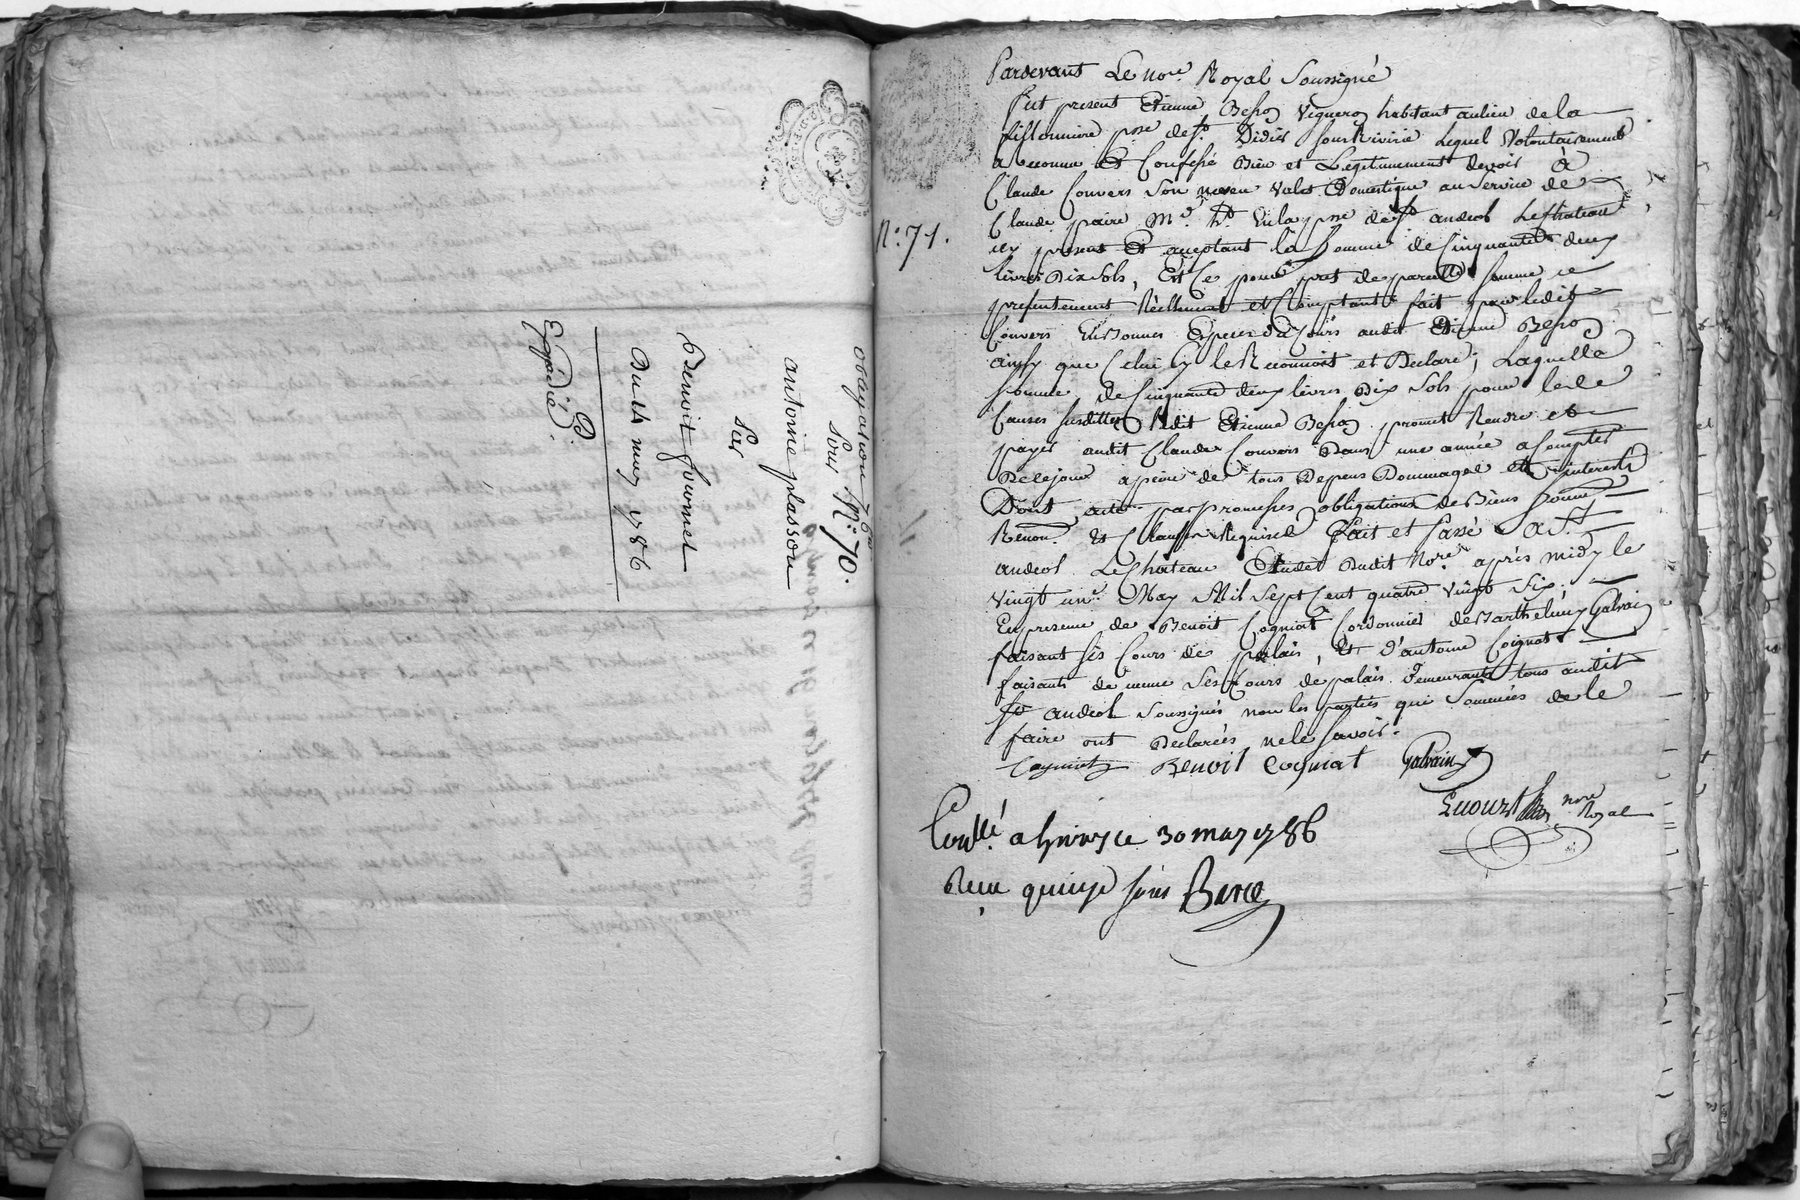 obligation 7bre
Pour N.° 70.
antoine plasson
Par
Benoit fournel
Du 14 may 1786
Expédié.
Pardevant Le nore. Royal Soussigné
fut present Etienne Besson Vigneron habitant aulieu de la
pssse. de St. Didier sous Rivirie Lequel Volontairement
a reconnu et Confessé Bien et Legitimement devoir à
Claude Convers Son neveu Valet Domestique au Service de
Claude paire Md. hd. En la psse de St andeol Le chateau
icy present Et acceptant la Somme de Cinquante deux
livres Dix Sols, Et Ce pour prest de pareille Somme ce
presentement Réellement et Comptant fait par ledit
Convers En Bonnes Especes Du Cours audit Etienne Besson
ainsy que Celui cy le Reconnoit et Declare; Laquelle
somme de Cinquante deux livres Dix Sols pour le de
Causes Susdittes ledit Etienne Besson promet Rendre et
payer audit Claude Convers Dans une année a Compter
De cejour apeine de tous Depens Dommages Et interests
Dont acte par promesses obligations de Biens Soumis.
Renon. Et Clauses Requises Fait et Passé A St
andeol Le Chateau Etude Dudit Nore. après midy le
Vingt un. May Mil Sept Cent quatre Vingt Six.
En presence de Benoit Cogniat Cordonnier de Barthelemy Galvain
faisant ses Cours de palais, Et d'antoine Coignat
faisants de meme Ses Cours de palais Demeurants tous audit
St andeol Soussignés non les parties qui Sommées de le
faire ont Declarées ne le Savoir.
Cogniat Benoit Cogniat Galvain
nore
Royal
N.° 71.
Conllé. a Givors ce 30 may 1786
Reçu quinze sols